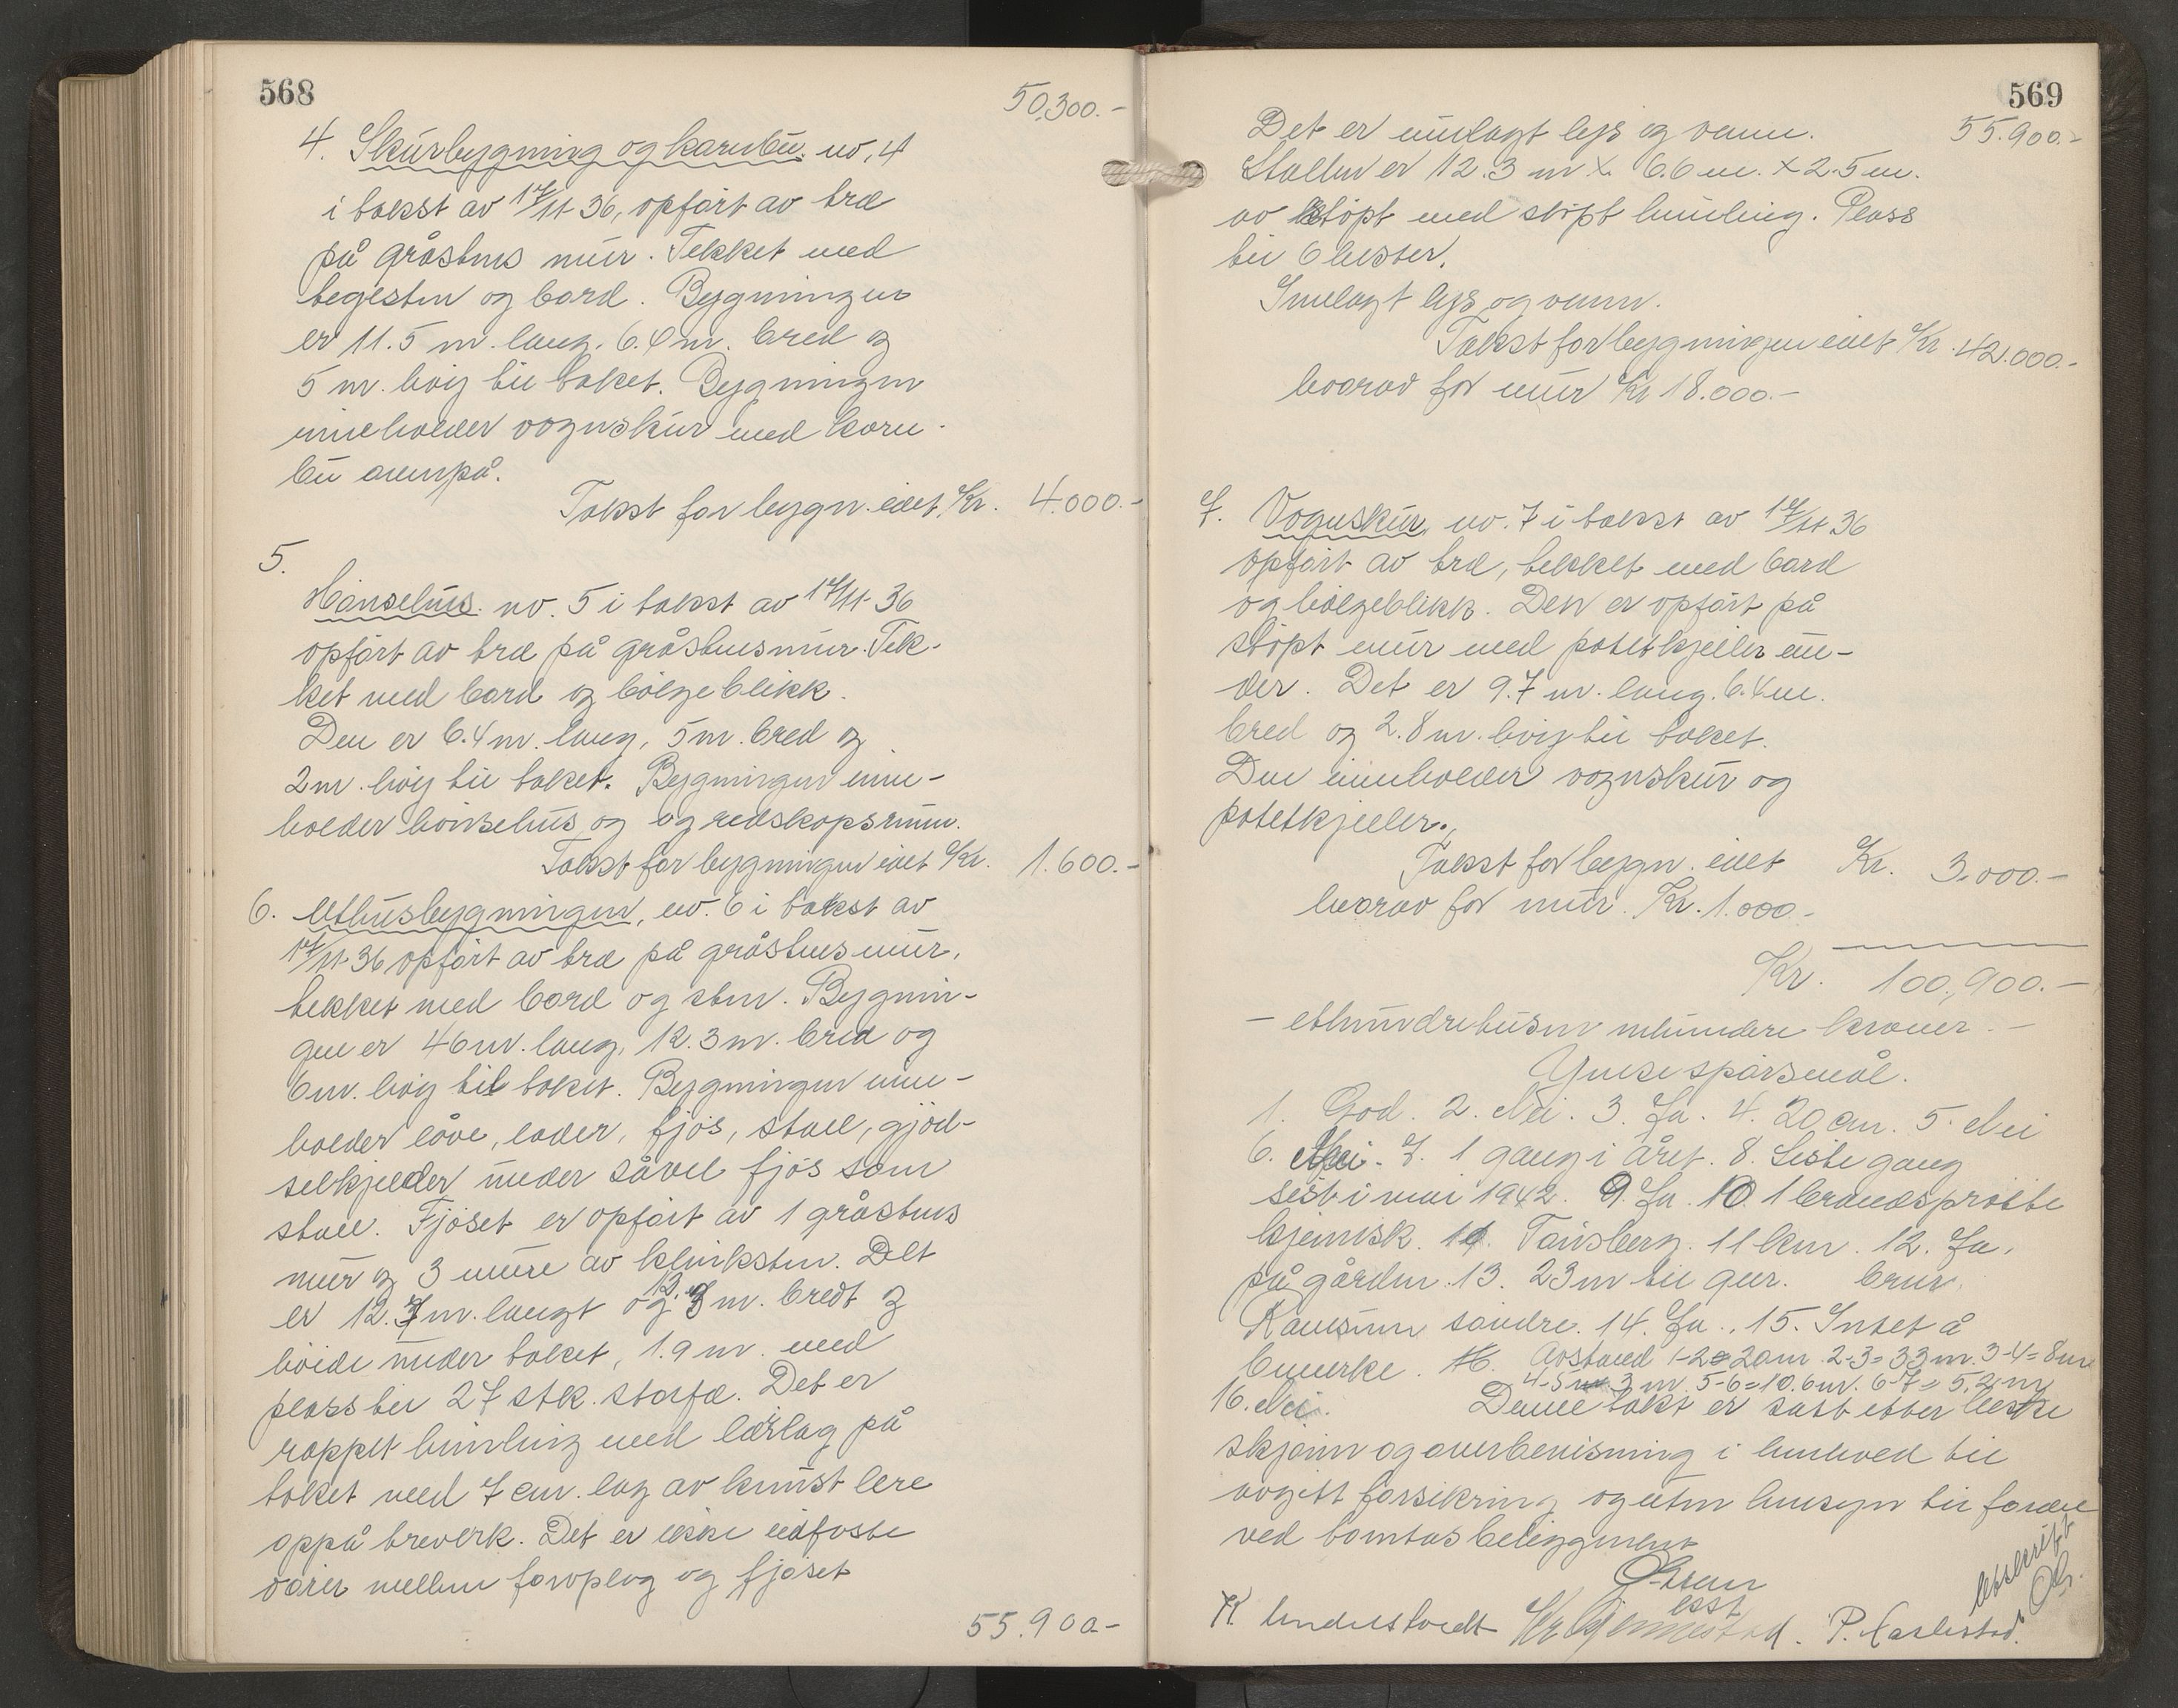 568
50,300.-
4. Skurbygning og kornbu. no. 4
i takst av 17/11-36, opført av tre
på gråstens mur. Tekket med
teglsten og bord. Bygningen
er 11.5 m. lang. 6.4 m. bred og
5 m. høi til taket. Bygningen
inneholder vognskur med korn-
bu ovenpå.
Takst for bygn. alet. Kr. 4.000.-
5.
Hønsehus. no. 5 i takst av 17/11-36
opført av tre på gråstensmur. Tek-
ket med bord og bølgeblikk.
Den er 6.4 m. lang, 5 m. bred og
2 m. høi til taket. Bygningen inne-
holder hønsehus og og redskapsrum.
Takst for bygningen alet Kr. 1.600.-
6. Uthusbygningen, no. 6 i takst av
17/11-36 opført av tre på gråstens mur,
tekket med bord og sten. Bygnin-
gen er 46 m. lang, 12.3 m. bred og
6 m. høi til taket. Bygningen inne-
holder låve, lader, fjøs, stall, gjød-
selkjelder under såvel fjøs som
stall. Fjøset er opført av 1 gråstens
mur og 3 mure av klinksten. Det
er 12.7 m. langt og 12.3 m. bredt og
høide under taket, 1.9 m. med
plass til 27 stk. storfe. Det er
rappet himling med lerlag på
taket med 7 cm. lag av kunst lere
oppå treverk. Det er ikke
dører mellem foroplag og fjøset
55.900-
569
Det er innlagt lys og vann. 55.900.-
Stallen er 12.3 m x 6.6 m. x 2.5 m.
av støpt med støpt himling. Plass
til 6 hester.
Innlagt lys og vann.
Takst for bygningen alet Kr. 42.000.-
hvorav for mur Kr 18.000.-
7. Vognskur, no. 7 i takst av 17/11-36
opført av tre, tekket med bord
og bølgeblikk. Den er opført på
støpt mur med potetkjeller un-
der. Det er 9.7 m. lang. 6.4 m.
bred og 2.8 m. høi til taket.
Den inneholder vognskur og
potetkjeller.
Takst for bygn. alet Kr. 3.000.-
hvorav for mur. Kr. 1.000.-
Kr. 100,900.-
- ethundretusen nihundre kroner. -
Ymse spørsmål.
1. God. 2. Nei. 3. Ja. 4. 20 cm. 5. Nei
6. Nei. 7. 1 gang i året. 8. Siste gang
sist i mai 1942. 9. Ja. 10. 1 brandsprøite
kjemisk. 11. Tønsberg. 11 km. 12. Ja,
på gården. 13. 23 m til brur.
Ramsum søndre. 14. Ja. 15. Intet å
bemerke. Avstand 1-2=20m 2-3=33m. 3-4=8m
4-5 3 m. 5-6=10.6 m. 6-7=5.2 m
16. Nei. Denne takst er satt etter beste
skjønn og overbevisning i henhold til
avgitt forsikring og uten hensyn til fordel
ved tomtas beliggenhet
Utskrift